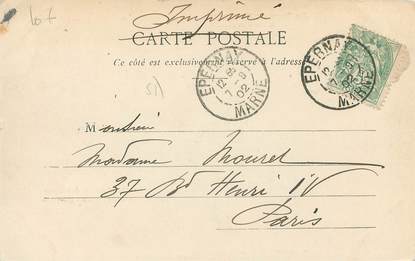 lot
Imprimé
CARTE POSTALE
Ce côté est exclusivement réservé à l'adresse
EPERNAY
12
7 - 9
02
MARNE
EPERNAY
12
02
MARNE
Monsieur
Madame Mourel
37 Bd Henri IV
Paris